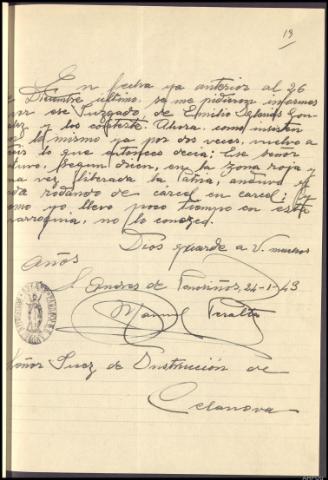 19
En fecha ya anterior al 26
Diciembre último, se me pidieron informes
por ese Juzgado, de Emilio Iglesias Gon
lez y los contesté. Ahora, como insisten
lo mismo ya por dos veces, vuelvo a
lo que entonces decia: Ese señor
tuvo, segun dicen, en la zona roja y
una vez liberada la Patria, anduvo
rodando de carcel en carcel;
como yo llevo poco tiempo en esta
arroquia, no lo conozco.
Dios guarde a V. muchos
años
S. Andres de 24-1-43
Manuel Peralta
Señor Juez de Instrucción de
Celanova